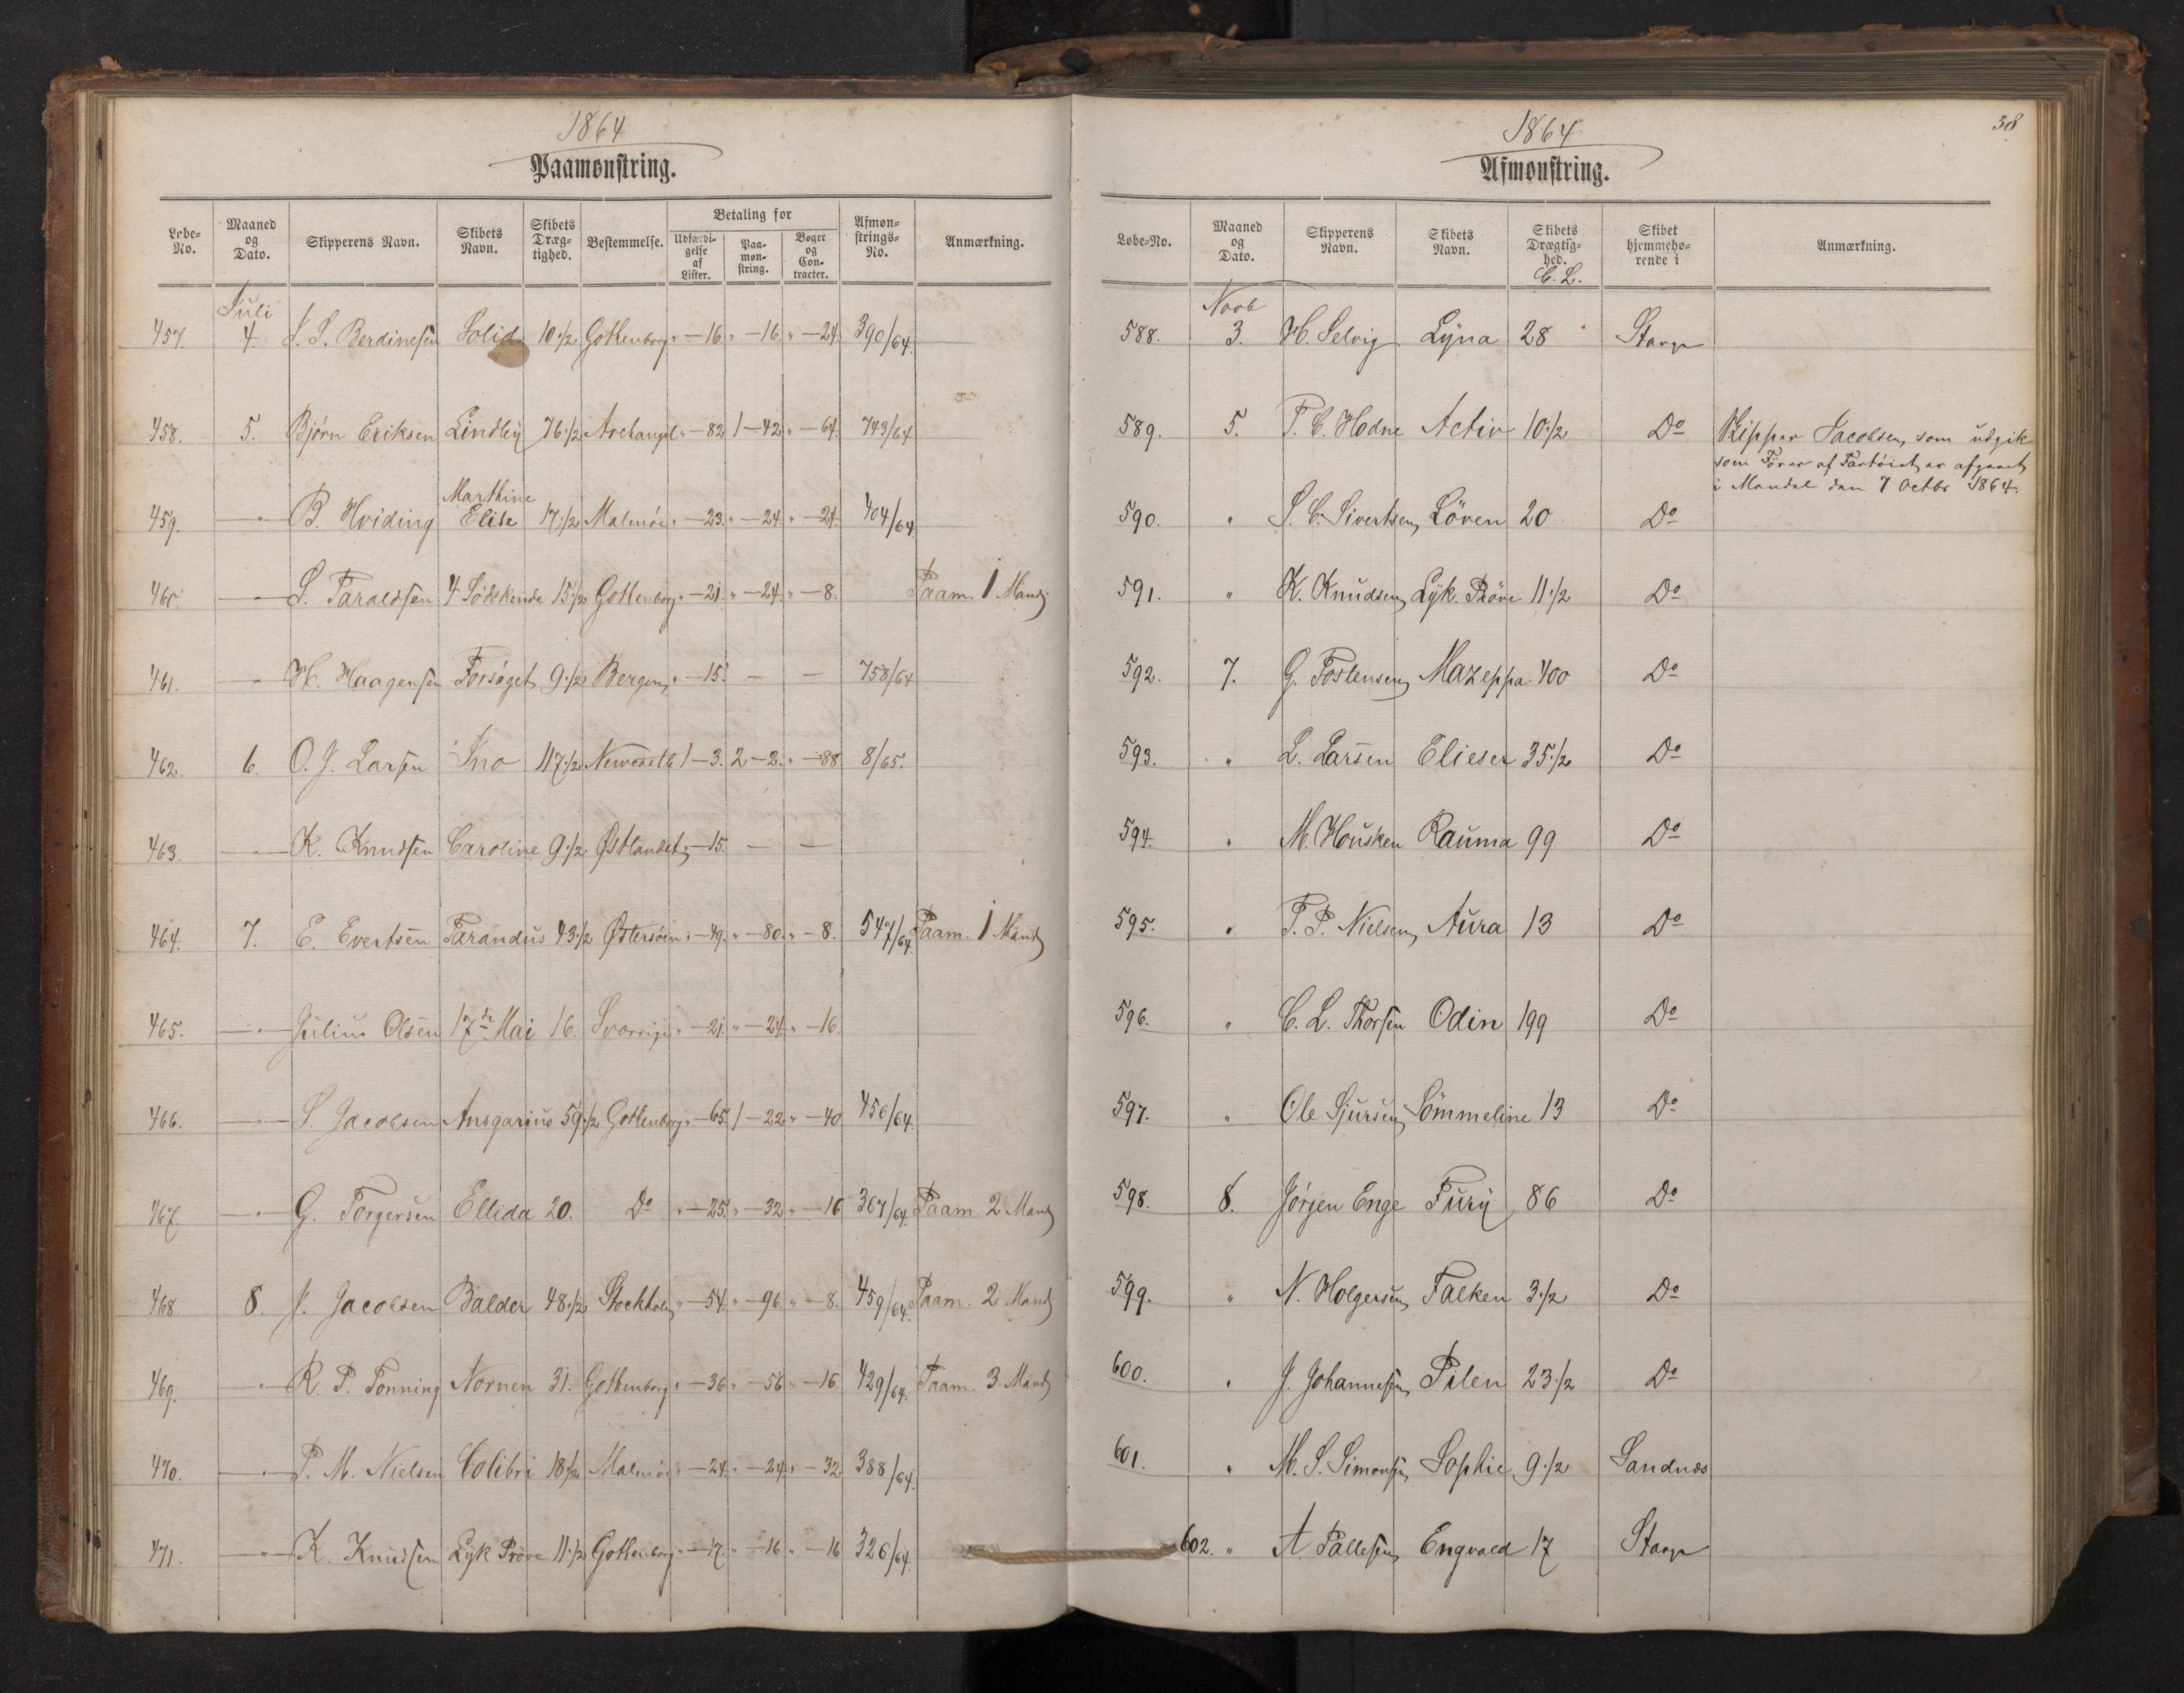 1864
Paamønstring.
Løbe-No. | Maaned og Dato. | Skipperens Navn. | Skibets Navn. | Skibets Dræg-tighed. | Bestemmelse. | Betaling for | Udfærdi-gelse af Lister. | Paa-møn-string. | Bøger og Con-tracter. | Afmøn-strings-No. | Anmærkning.
457. Juli 4. S. S. Berdinesen Solid 10 1/2 Gottenborg " — 16. " — 16. " — 24. 390/64.
458. 5. Bjørn Eriksen Lindby 76 1/2 Archangel " — 82 1 — 42 " — 64. 743/64
459. — " — B. Hviding Marthine Elise 17 1/2 Malmöe " — 23. " — 24. " — 24. 404/64.
460. — " — S. Taraldsen 4 Södskende 15 1/2 Gottenborg " — 21. " — 24. " — 8. Paam. 1 Mand
461. — " — H. Haagensen Forsøget 9 1/2 Bergen " — 15. — — 758/64
462. 6. O. J. Larsen Ino 117 1/2 Newcastle 1 — 3. 2 — 2. " — 88 8/65.
463. — " — K. Knudsen Caroline 9 1/2 Østlandet " — 15. — —
464. 7. E. Evertsen Tarandus 43 1/2 Østersøen " — 49. " — 80. " — 8. 547/64. Paam. 1 Mand
465. — " — Julius Olsen 17de Mai 16. Sverrige " — 21. " — 24. " — 16.
466. — " — S. Jacobsen Ansgarius 59 1/2 Gottenborg " — 65. 1 — 22 " — 40 456/64.
467. — " — G. Torgersen Ellida 20. Do " — 25. " — 32 " — 16 367/64. Paam. 2 Mand
468. 8. J. Jacobsen Balder 48 1/2 Stockholm " — 54. " — 96. " — 8. 459/64. Paam. 2 Mand
469. — " — R. P. Tonning Nornen 31. Gottenborg " — 36 " — 56 " — 16. 429/64. Paam. 3 Mand
470. — " — P. M. Nielsen Colibri 18 1/2 Malmöe " — 24. " — 24. " — 32 388/64.
471. — " — K. Knudsen Lyk Prøve 11 1/2 Gottenborg " — 17. " — 16 " — 16 326/64.
38
1864
Afmønstring.
Løbe-No. | Maaned og Dato. | Skipperens Navn. | Skibets Navn. | Skibets Drægtig-hed. C. L. | Skibet hjemmehø-rende i | Anmærkning.
588. Novb 3. H. Selvig Lyna 28 Stavgr
589. 5. T. C. Hodne Activ 10 1/2 Do Skipper Jacobsen, som udgik
som Fører af Fartöiet er afgaaet
i Mandal den 7 Octbr 1864.
590. " S. C. Sivertsen Löven 20 Do
591. " K. Knudsen Lyk. Pröve 11 1/2 Do
592. 7. G. Tostensen Mazeppa 400 Do
593. " L. Larsen Elieser 35 1/2 Do
594. " M. Housken Rauma 99 Do
595. " T. P. Nielsen Aura 13 Do
596. " C. L. Thorsen Odin 199 Do
597. " Ole Sjursen Sömmeline 13 Do
598. 8. Jörgen Enge Fury 86 Do
599. " N. Holgersen Falken 3 1/2 Do
600. " J. Johannesen Pilen 23 1/2 Do
601. " M. S. Simonsen Sophie 9 1/2 Sandnæs
602. " A. Pallesen Engvald 17 Stavgr